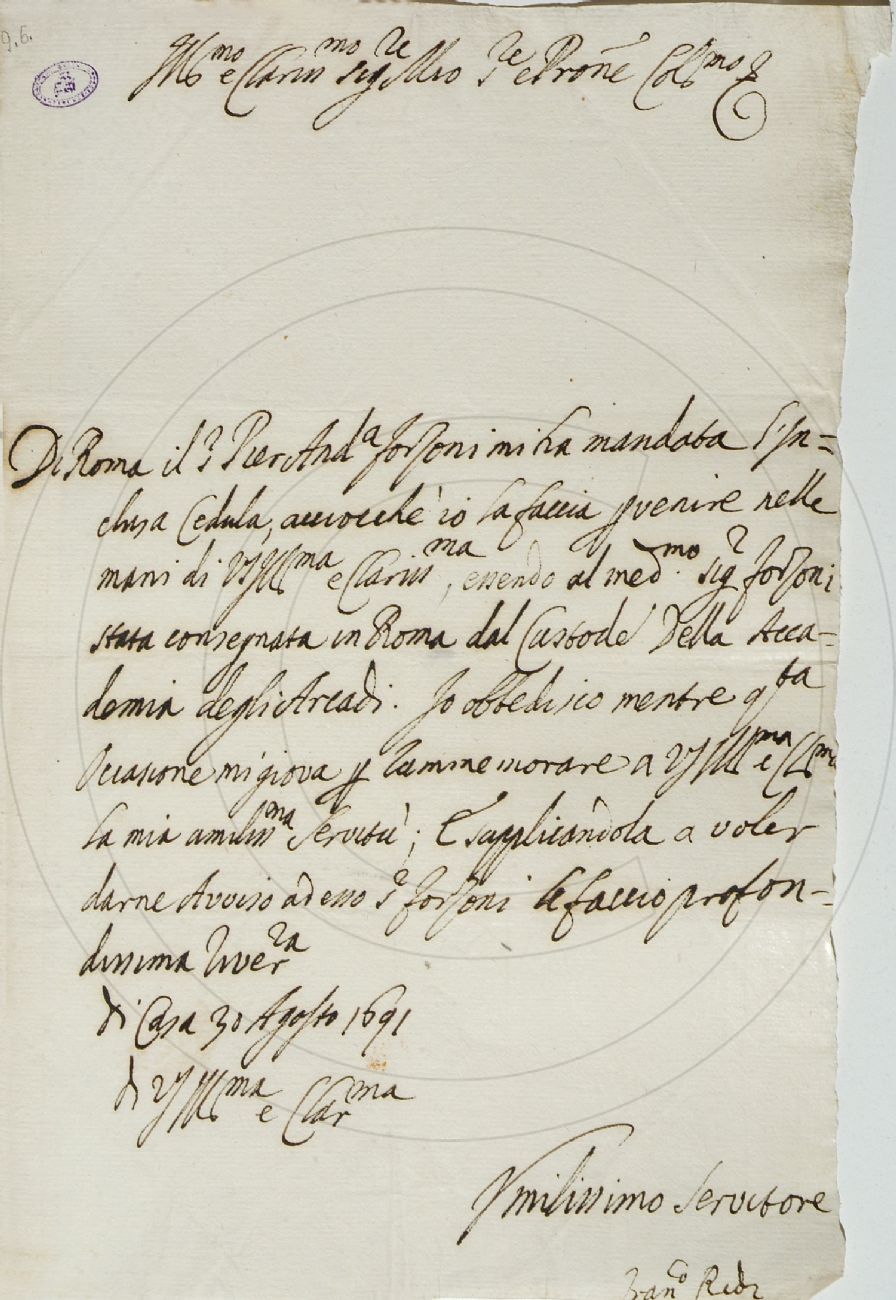 9.6.
Ill.mo e Clariss.mo Sig.re Mio S.re e Prōne Col.mo
Di Roma il S.r Pier And.a Forzoni mi ha mandata l'in=
clusa Cedula, acciocchè io la faccia pvenire nelle
mani di VS Ill.ma e Clariss.ma, essendo al med.mo Sig.r Forzoni
stata consegnata in Roma dal Custode Della Acca=
demia degli Arcadi. Io obbedisco mentre q.ta
Occasione mi giova p rammemorare a VS Ill.ma e Cl.ma
la mia umiliss.ma Servitù; E supplicandola a voler
darne Avviso ad esso S.r Forzoni le faccio profon=
dissima River.za
di Casa 30 Agosto 1691
di VS Ill.ma e Clar.ma
Umilissimo Servitore
Fran.co Redi